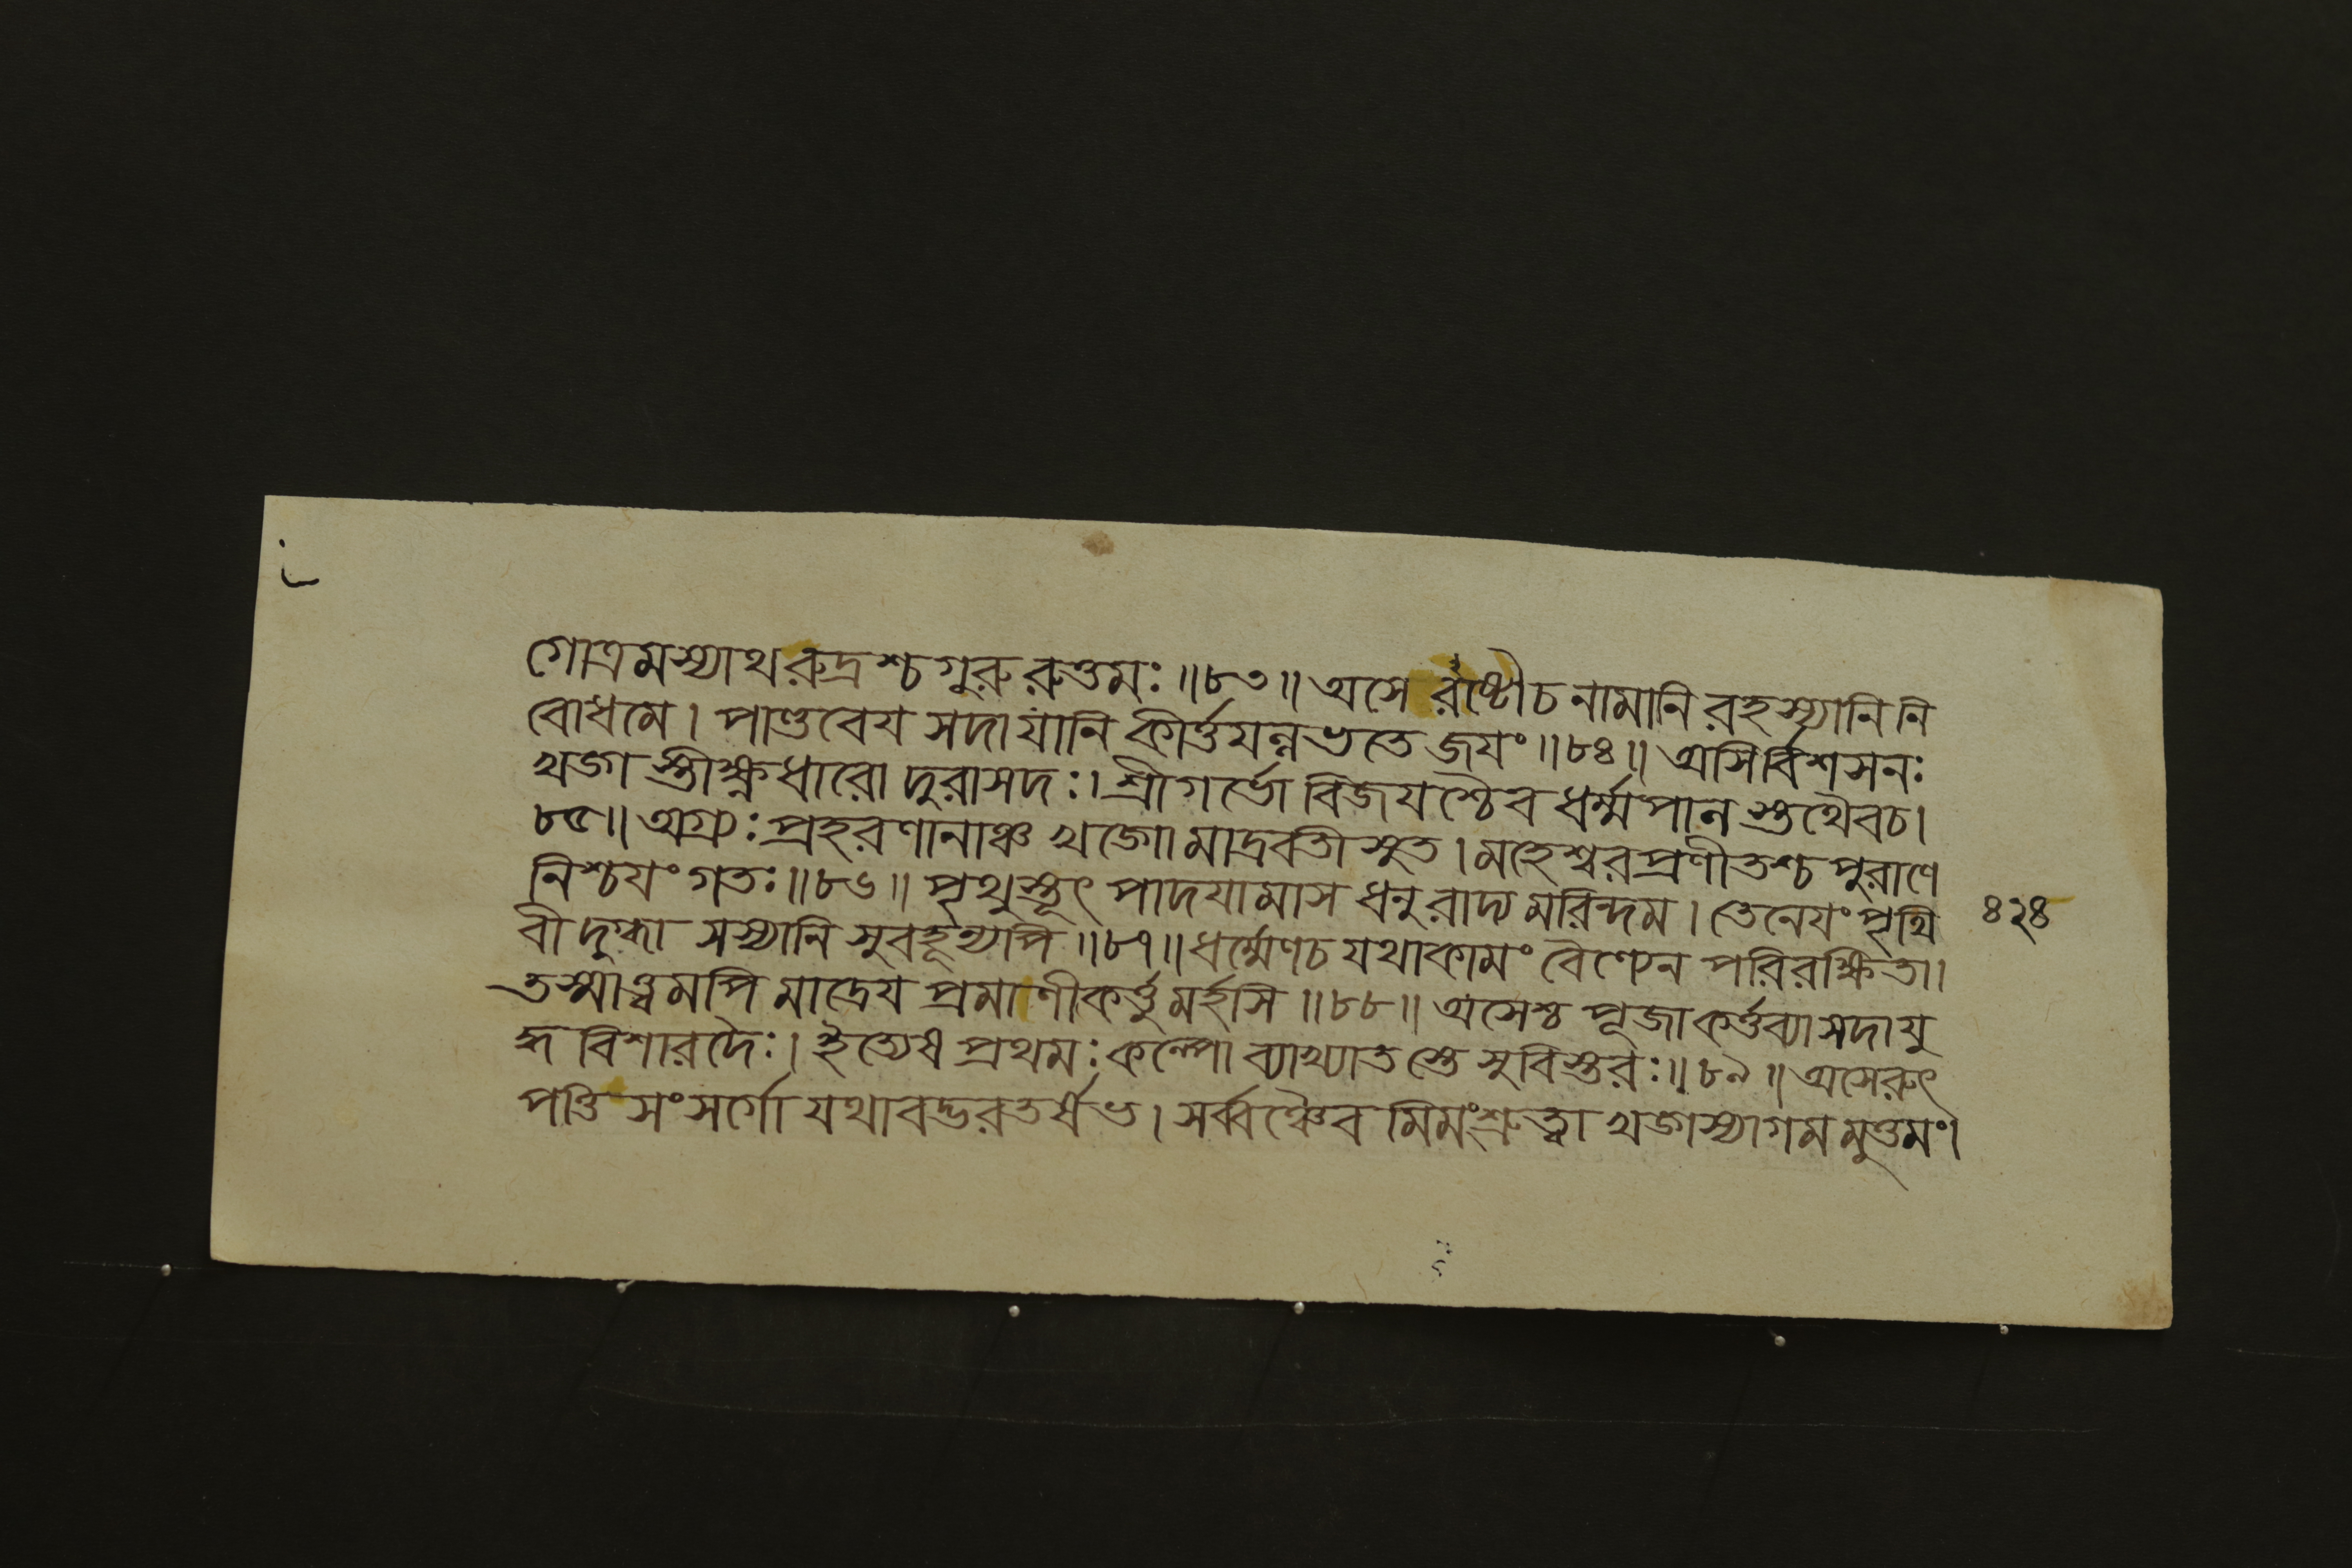 গোত্রমস্যাথরুদ্রশ্চগুরুরুত্তমঃ॥৮৩॥অসে রষ্টৌচনামানিরহস্যানিনি
বোধমে। পাণ্ডবেয সদাযানি কীর্ত্তযন্নভতে জযং॥৮৪॥ অসির্বিশসনঃ
খড়্গা স্তীক্ষ্ণধারো দুরাসদঃ। শ্রীগর্ভো বিজযশ্চৈব ধর্ম্মপান স্তথৈবচ।
৮৫॥ অগ্র্যঃপ্রহরণানাঞ্চ খড়্গো মাদ্রবতী সুত।মহেশ্বরপ্রণীতশ্চ পুরাণে
নিশ্চযং গতঃ॥৮৬॥ পৃথুস্তূৎ পাদযামাস ধনু রাদ্য মরিন্দম। তেনেযং পৃথি
বী দুগ্ধা সস্যানি সুবহূন্যপি॥৮৭॥ধর্ম্মেণচ যথাকামং বৈণ্যেন পরিরক্ষিতা।
তস্মাত্ত্বমপি মাদ্রেয প্রমাণীকর্ত্তুমর্হসি॥৮৮॥ অসেশ্চ পূজাকর্ত্তব্যাসদাযু
দ্ধ বিশারদৈঃ। ইত্যেষ প্রথমঃ কল্পো ব্যাখ্যাত স্তে সুবিস্তরঃ॥৮৯॥ অসেরুৎ
পত্তি সংসর্গো যথাবদ্ভরতর্ষভ। সর্ব্বঞ্চৈব মিমংশ্রুত্বা খড়্গস্যাগমমুত্তমং।
৪২৪